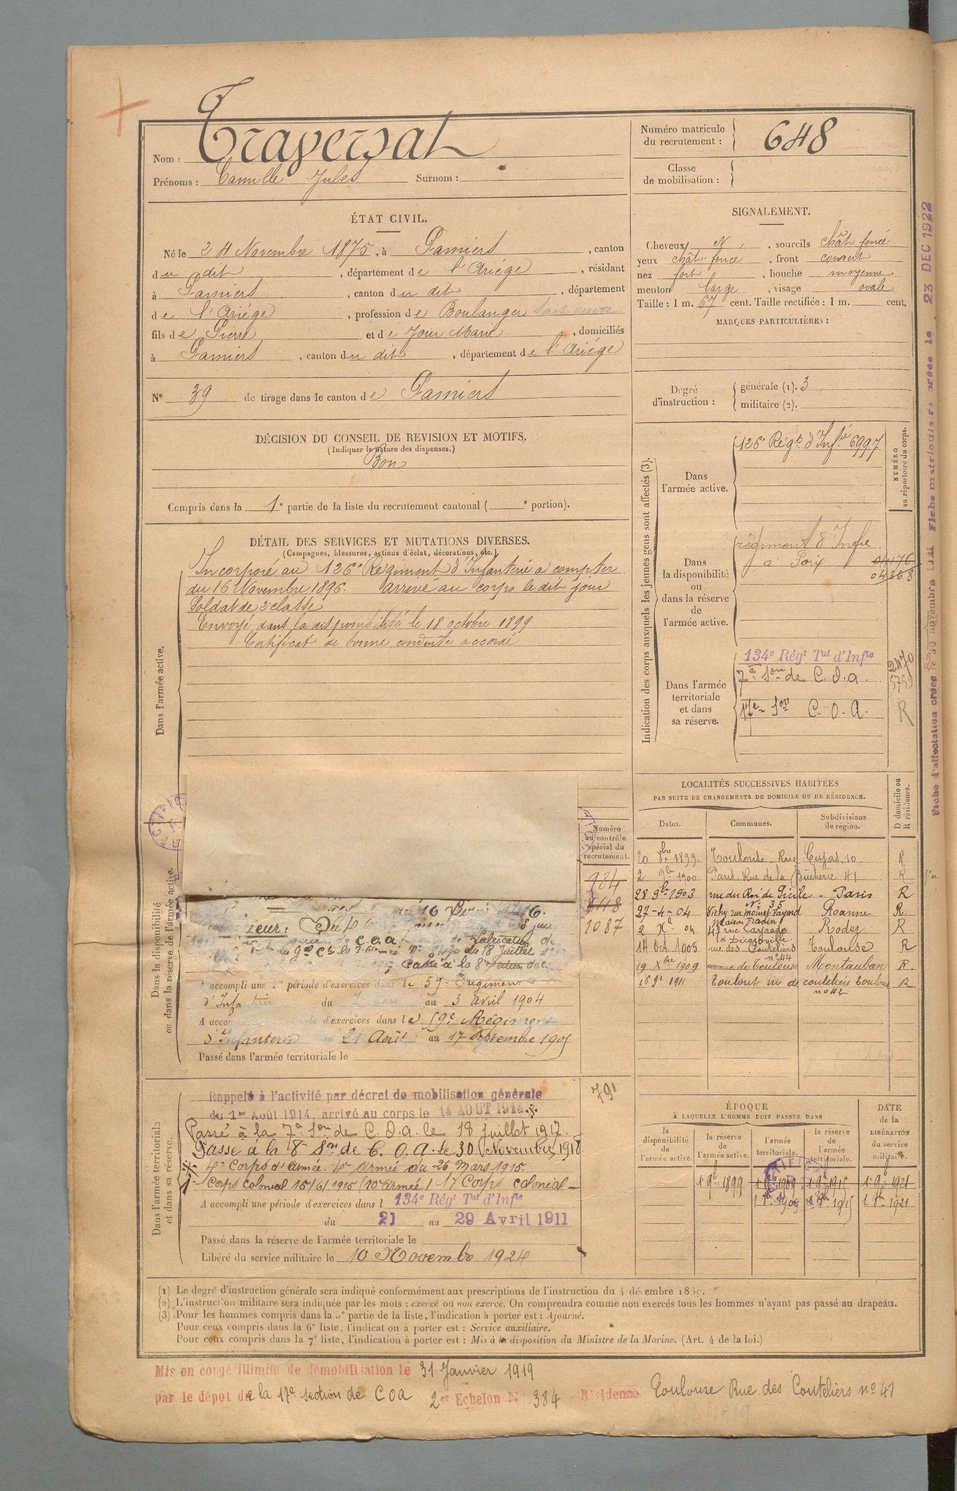 Nom : Traversat
Prénoms : Camille Jules Surnom :
Numéro matricule du recrutement : 648
Classe de mobilisation :
ÉTAT CIVIL.
Né le 24 Novembre 1875, à Pamiers, canton
du dit, département de l'Ariége, résidant
à Pamiers, canton du dit, département
de l'Ariége, profession de Boulanger
fils de Pierre et de Jour Marie, domiciliés
à Pamiers, canton du dit, département de l'Ariége
N° 39 de tirage dans le canton de Pamiers
SIGNALEMENT.
Cheveux N, sourcils chât foncé
yeux chât foncé, front couvert
nez fort, bouche moyenne
menton large, visage ovale
Taille : 1 m. 67 cent. Taille rectifiée : 1 m. cent.
MARQUES PARTICULIÈRES :
Degré d'instruction : générale (1). 3
militaire (2).
DÉCISION DU CONSEIL DE REVISION ET MOTIFS.
(Indiquer la nature des dispenses.)
Bon
Compris dans la 1e partie de la liste du recrutement cantonal ( e portion).
DÉTAIL DES SERVICES ET MUTATIONS DIVERSES.
(Campagnes, blessures, actions d'éclat, décorations, etc.)
Dans l'armée active.
Incorporé au 126e Régiment d'Infanterie à compter
du 16 Novembre 1896. Arrivé au corps le dit jour
Soldat de 2e classe
Envoyé dans la disponibilité le 18 octobre 1899
Certificat de bonne conduite accordé
Indication des corps auxquels les jeunes gens sont affectés (3).
NUMÉRO au répertoire du corps.
Dans l'armée active.
126e Régt d'Infie 6997
Dans la disponibilité ou dans la réserve de l'armée active.
régiment d'Infie
à Foix
04176
04368
Dans l'armée territoriale et dans sa réserve.
134e Régt Tal d'Infie
7e Son de C.O.a.
17e Son C.O.A. R
2470
LOCALITÉS SUCCESSIVES HABITÉES
PAR SUITE DE CHANGEMENTS DE DOMICILE OU DE RÉSIDENCE.
Dates. Communes. Subdivisions de région. D domicile ou R résidence.
20 8bre 1899 Toulouse Rue Cujas 10 R
2 9bre 1900 Paris Rue de la 41 R
28 9bre 1903 rue du Roi de Sicile Paris R
N° 35
27-4-04 Vichy rue Roanne R
2 X 04 43 rue Rodez R
14 Oct 1905 rue des Couteliers Toulouse R
n° 44
19 Xbre 1909 avenue de Toulouse Montauban R
1911 Toulouse r. des couteliers Toulouse R
n° 42
Numéro au contrôle spécial du recrutement.
904
648
1087
791
Dans la disponibilité ou dans la réserve de l'armée active.
16
C O A
18 Juillet
Passé à la 8e section de
A accompli une 1e période d'exercices dans le 59e Régiment
d'Infanterie du au 3 avril 1904
A accompli une période d'exercices dans le 59e Régiment
d'Infanterie du 21 Août au 17 Septembre 1905
Passé dans l'armée territoriale le
Dans l'armée territoriale et dans sa réserve.
Rappelé à l'activité par décret de mobilisation générale
du 1er Août 1914, arrivé au corps le 14 AOUT 1914
Passé à la 7e Son de C.O.a. le 18 Juillet 1917
Passé à la 8e Son de C.O.A. le 30 Novembre 1918
4e Corps d'armée du 26 Mars 1915
Corps Colonial 15/6/1915 (10e Armée) 17 Corps colonial
A accompli une période d'exercices dans l 134e Régt Tal d'Infie
du 21 au 29 Avril 1911
Passé dans la réserve de l'armée territoriale le
Libéré du service militaire le 10 Novembre 1924
ÉPOQUE
À LAQUELLE L'HOMME DOIT PASSER DANS
la disponibilité de l'armée active. la réserve de l'armée active. l'armée territoriale. la réserve de l'armée territoriale.
DATE de la LIBÉRATION du service militaire.
1 9e 1899 1 9e 1909 1 9e 1915 1 9e 1921
1 8e 1909 1 8e 1915 1 8e 1921
(1) Le degré d'instruction générale sera indiqué conformément aux prescriptions de l'instruction du 4 décembre 1889.
(2) L'instruction militaire sera indiquée par les mots : exercé ou non exercé. On comprendra comme non exercés tous les hommes n'ayant pas passé au drapeau.
(3) Pour les hommes compris dans la 5e partie de la liste, l'indication à porter est : Ajourné.
Pour ceux compris dans la 6e liste, l'indication à porter est : Service auxiliaire.
Pour ceux compris dans la 7e liste, l'indication à porter est : Mis à la disposition du Ministre de la Marine. (Art. 4 de la loi.)
Mis en congé illimité de démobilisation le 31 Janvier 1919
par le dépôt de la 17e section de COA 2e Echelon N° 384 Résidence Toulouse Rue des Couteliers n° 41
Fiche matriculaire créée le 23 DEC 1922